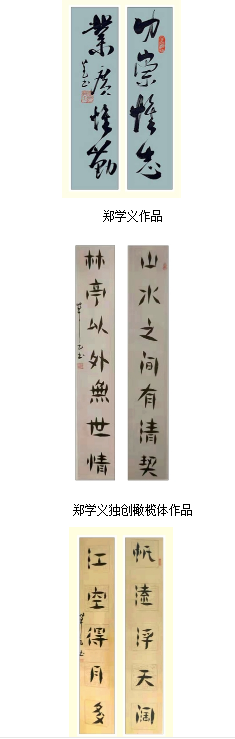 功崇惟志
業廣惟勤
郑学义作品
山水之間有清契
林亭以外無世情
郑学义独创橄榄体作品
帆遠浮天闊
江空得月多